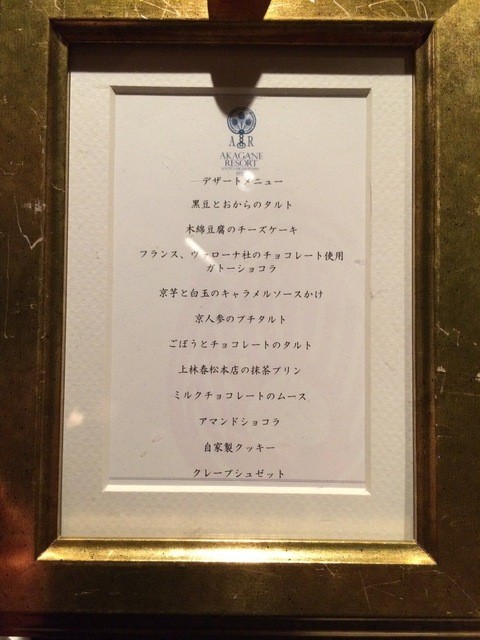 A R
AKAGANE
RESORT
デザートメニュー
黒豆とおからのタルト
木綿豆腐のチーズケーキ
フランス、ヴァローナ社のチョコレート使用
ガトーショコラ
京芋と白玉のキャラメルソースかけ
京人参のプチタルト
ごぼうとチョコレートのタルト
上林春松本店の抹茶プリン
ミルクチョコレートのムース
アマンドショコラ
自家製クッキー
クレープシュゼット